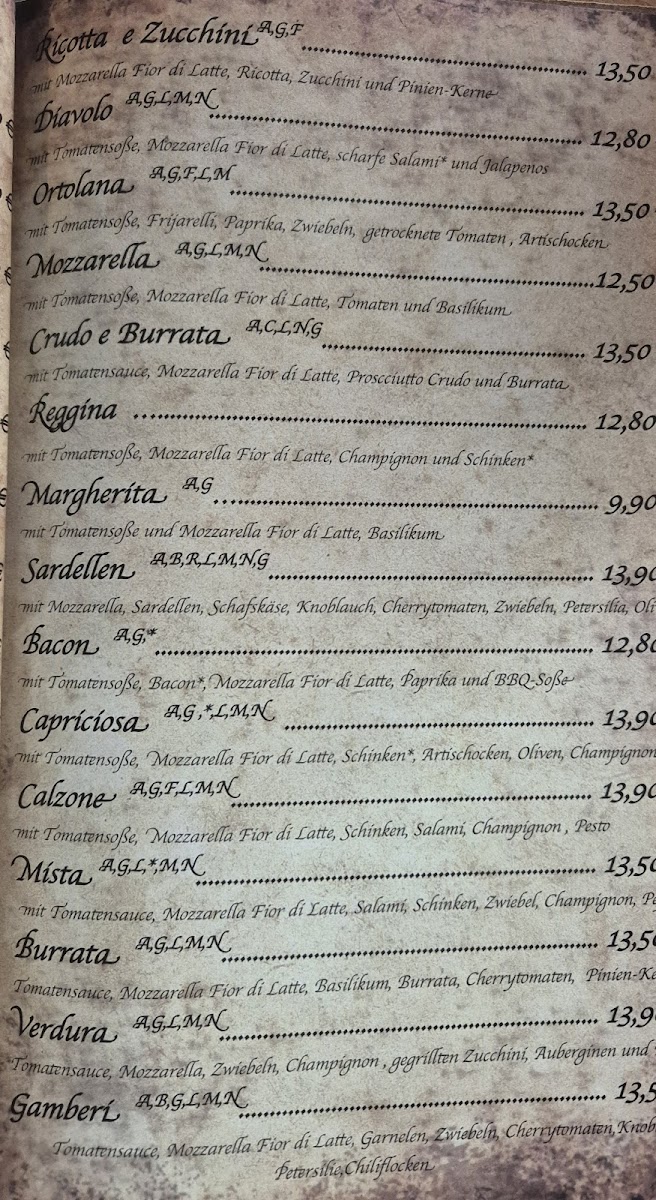 Ricotta e Zucchini A,G,F 13,50
mit Mozzarella Fior di Latte, Ricotta, Zucchini und Pinien-Kerne
Diavolo A,G,L,M,N 12,80
mit Tomatensoße, Mozzarella Fior di Latte, scharfe Salami* und Jalapenos
Ortolana A,G,F,L,M 13,50
mit Tomatensoße, Frijarelli, Paprika, Zwiebeln, getrocknete Tomaten , Artischocken
Mozzarella A,G,L,M,N 12,50
mit Tomatensoße, Mozzarella Fior di Latte, Tomaten und Basilikum
Crudo e Burrata A,C,L,N,G 13,50
mit Tomatensauce, Mozzarella Fior di Latte, Proscciutto Crudo und Burrata
Reggina 12,80
mit Tomatensoße, Mozzarella Fior di Latte, Champignon und Schinken*
Margherita A,G 9,90
mit Tomatensoße und Mozzarella Fior di Latte, Basilikum
Sardellen A,B,R,L,M,N,G 13,90
mit Mozzarella, Sardellen, Schafskäse, Knoblauch, Cherrytomaten, Zwiebeln, Petersilia, Oli
Bacon A,G,* 12,80
mit Tomatensoße, Bacon*, Mozzarella Fior di Latte, Paprika und BBQ-Soße
Capriciosa A,G ,*,L,M,N 13,90
mit Tomatensoße, Mozzarella Fior di Latte, Schinken*, Artischocken, Oliven, Champignon
Calzone A,G,F,L,M,N 13,90
mit Tomatensoße, Mozzarella Fior di Latte, Schinken, Salami, Champignon , Pesto
Mista A,G,L,*,M,N 13,50
mit Tomatensauce, Mozzarella Fior di Latte, Salami, Schinken, Zwiebel, Champignon, Pe
Burrata A,G,L,M,N 13,50
Tomatensauce, Mozzarella Fior di Latte, Basilikum, Burrata, Cherrytomaten, Pinien-Ke
Verdura A,G,L,M,N 13,90
Tomatensauce, Mozzarella, Zwiebeln, Champignon , gegrillten Zucchini, Auberginen und
Gamberi A,B,G,L,M,N 13,5
Tomatensauce, Mozzarella Fior di Latte, Garnelen, Zwiebeln, Cherrytomaten,Knob
Petersilie,Chiliflocken